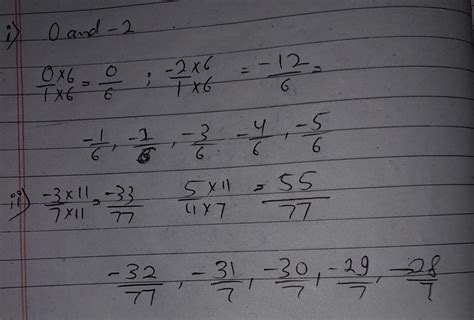 i) 0 and -2
0×6/1×6 = 0/6 ; -2×6/1×6 = -12/6 =
-1/6, -2/6, -3/6 -4/6, -5/6
ii) -3×11/7×11 = -33/77 5×11/11×7 = 55/77
-32/77, -31/7, -30/7, -29/7, -28/7